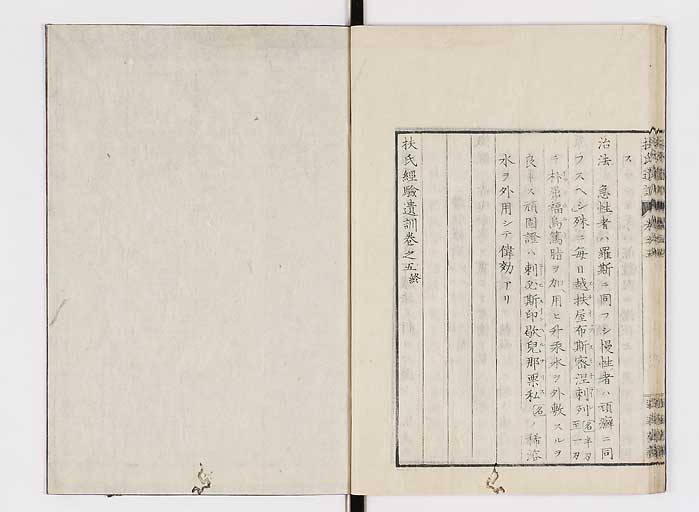 ス
治法 急性者ハ羅斯ニ同フシ慢性者ハ頑癬ニ同
フスヘシ殊ニ每日越扶屋布斯審涅剌列名半刃至一刃
ニ朴弟福烏篤脂ヲ加用ヒ升汞水ヲ外敷スルヲ
良トス頑固證ハ剌必斯印歇兒那栗私名ノ稀溶
水ヲ外用シテ偉効アリ
扶氏經驗遺訓卷之五終